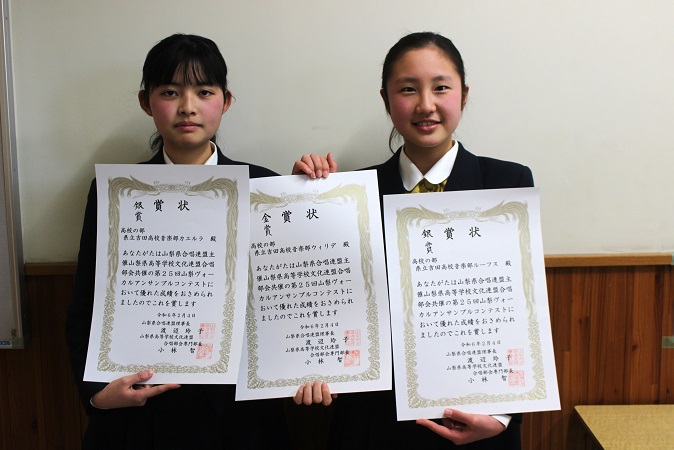 賞状
銀賞
高校の部
県立吉田高校音楽部カエルラ 殿
あなたがたは山梨県合唱連盟主
催山梨県高等学校文化連盟合唱
部会共催の第25回山梨ヴォー
カルアンサンブルコンテストに
おいて優れた成績をおさめられ
ましたのでこれを賞します
令和6年2月4日
山梨県合唱連盟理事長
渡辺玲子
山梨県高等学校文化連盟
合唱部会専門部長
小林智
賞状
金賞
高校の部
県立吉田高校音楽部ウィリデ 殿
あなたがたは山梨県合唱連盟主
催山梨県高等学校文化連盟合唱
部会共催の第25回山梨ヴォー
カルアンサンブルコンテストに
おいて優れた成績をおさめられ
ましたのでこれを賞します
令和6年2月4日
山梨県合唱連盟理事長
渡辺玲子
山梨県高等学校文化連盟
合唱部会専門部長
小林智
賞状
銀賞
高校の部
県立吉田高校音楽部ルーフス 殿
あなたがたは山梨県合唱連盟主
催山梨県高等学校文化連盟合唱
部会共催の第25回山梨ヴォー
カルアンサンブルコンテストに
おいて優れた成績をおさめられ
ましたのでこれを賞します
令和6年2月4日
山梨県合唱連盟理事長
渡辺玲子
山梨県高等学校文化連盟
合唱部会専門部長
小林智